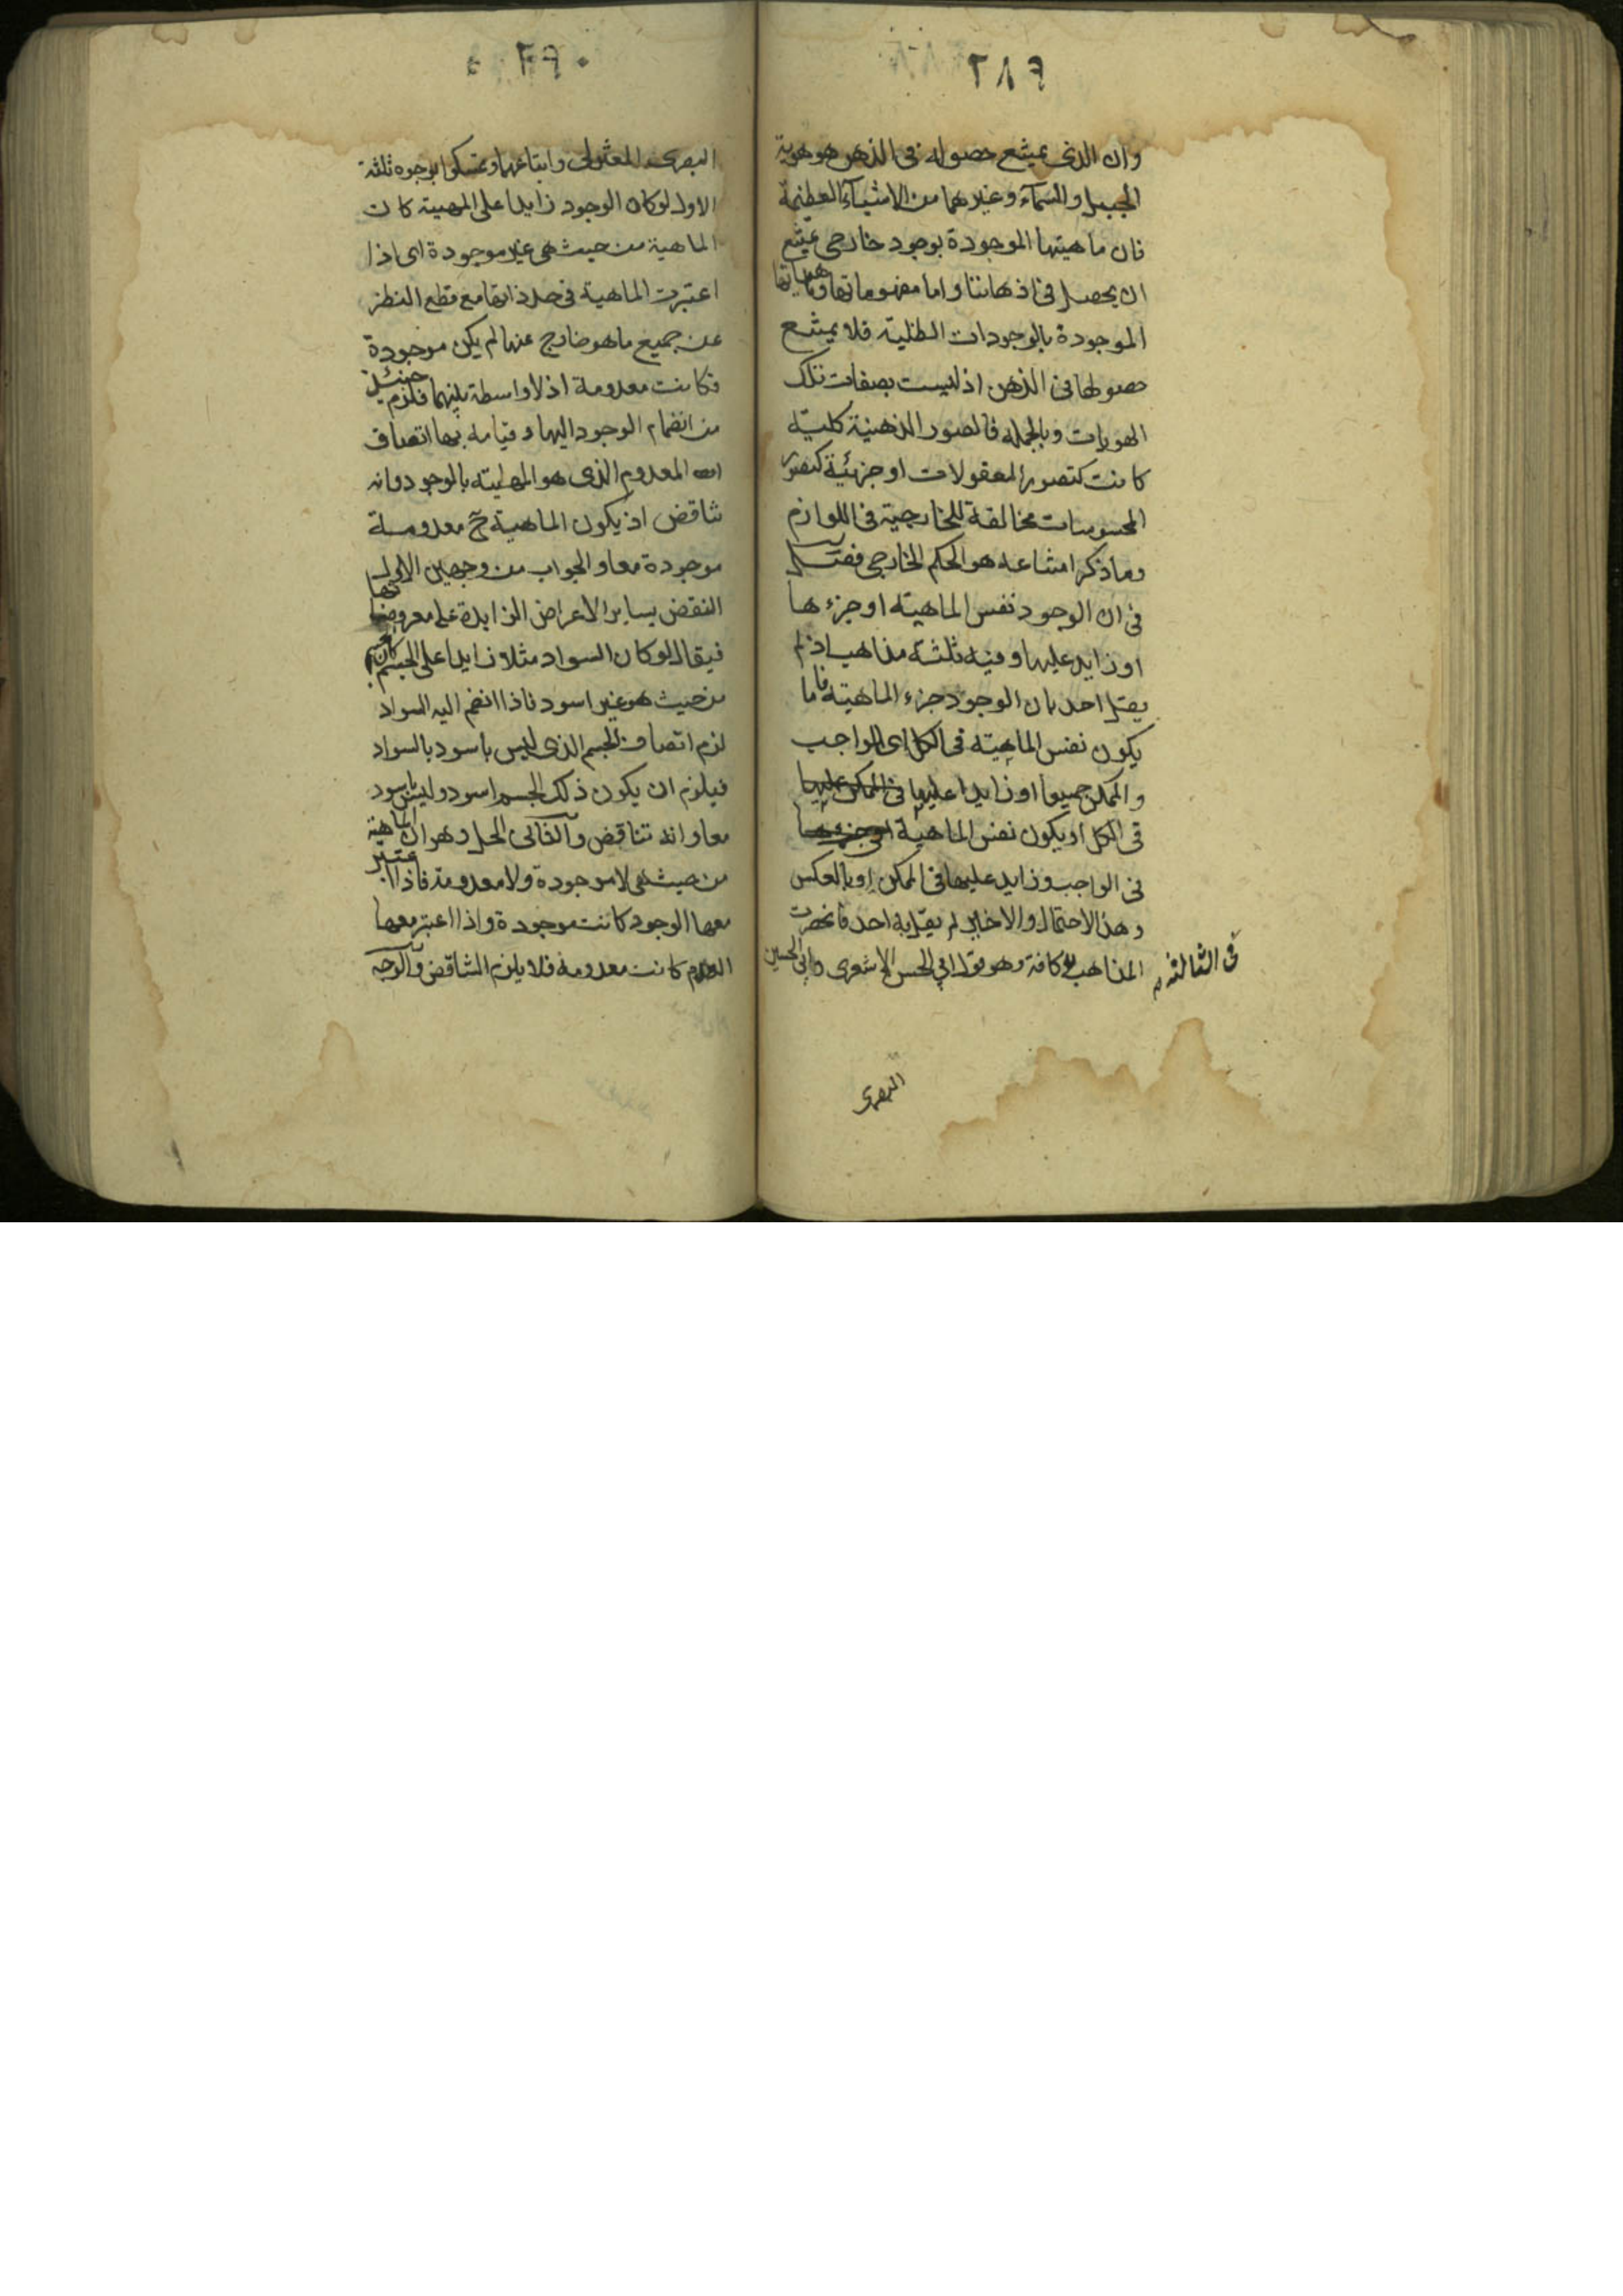 ٢٨٩
وان الذى يمتنع حصوله فى الذهن هو هوية
الجبل والسمآء وغيرهما من الاشيآء العظيمة
فان ماهيتها الموجودة بوجود خارجى يمتنع
ان يحصل فى اذهاننا واما مفهوماتها وماهياتها
الموجودة بالوجودات الظلية فلا يمتنع
حصولها فى الذهن اذ ليست بصفات تلك
الهويات وبالجمله فالصور الذهنية كلية
كانت كتصور المعقولات او جزئية كتصور
المحسوسات مخالفة للخارجية فى اللوازم
وما ذكر امتناعه هو الحكم الخارجى فصل
فى ان الوجود نفس الماهية او جزءها
او زايد عليها وفيه ثلثة مذاهب اذ لم
يقل احد بان الوجود جزء الماهية فاما
يكون نفس الماهية فى الكل اى الواجب
والممكن جميعا او زايدا عليها فى الممكن عليها
فى الكل او يكون نفس الماهية او جزءها
فى الواجب وزايد عليها فى الممكن او بالعكس
وهذا الاحتمال والاخاير لم يقل به احد فانحصرت
المذاهب كافة وهو قول ابى الحسن الاشعرى وابى الحسين
فى الثالثة
البصرى
٢٩٠
البصرى المعتزلى واتباعهما وتمسكوا بوجوه ثلثة
الاول لو كان الوجود زايدا على المهية كانت
الماهية من حيث هى غير موجودة اى اذا
اعتبرت الماهية فى حد ذاتها مع قطع النظر
عن جميع ما هو خارج عنها لم يكن موجودة
فكانت معدومة اذ لا واسطة بينهما فلزم حينئذ
من انضمام الوجود اليها وقيامه بها اتصاف
المعدوم الذى هو الماهية بالوجود وانه
تناقض اذ يكون الماهية ح معدومة
موجودة معا والجواب من وجهين الاول
النقض بساير الاعراض الزايدة على معروضاتها
فيقال لو كان السواد مثلا زايدا على الجسم كان الجسم
من حيث هو غير اسود فاذا انضم اليه السواد
لزم اتصاف الجسم الذى ليس باسود بالسواد
فيلزم ان يكون ذلك الجسم اسود وليس باسود
معا وانه تناقض والثانى الحل وهو ان الماهية
من حيث هى لا موجودة ولا معدومة فاذا اعتبر
معها الوجود كانت موجودة واذا اعتبر معها
العدم كانت معدومة فلا يلزم التناقض والوجه